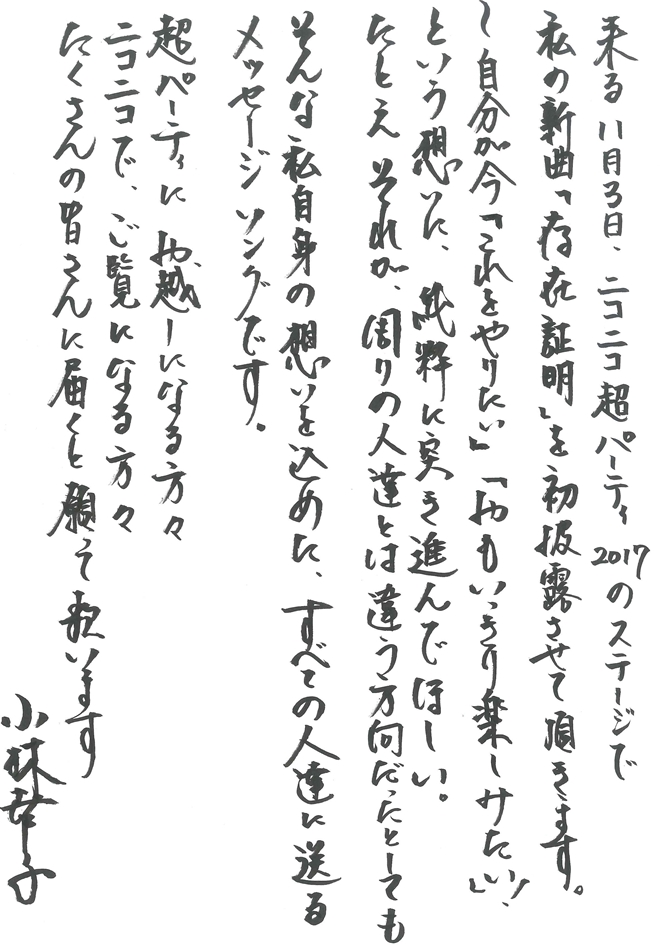 来る11月3日、ニコニコ超パーティ2017のステージで
私の新曲「存在証明」を初披露させて頂きます。
〜自分が今「これをやりたい」「おもいっきり楽しみたい」！
という想いに、純粋に突き進んでほしい。
たとえそれが、周りの人達とは違う方向だったとしても
そんな私自身の想いを込めた、すべての人達に送る
メッセージソングです。
超パーティにお越しになる方々
ニコニコで、ご覧になる方々
たくさんの皆さんに届くと願って歌います
小林幸子